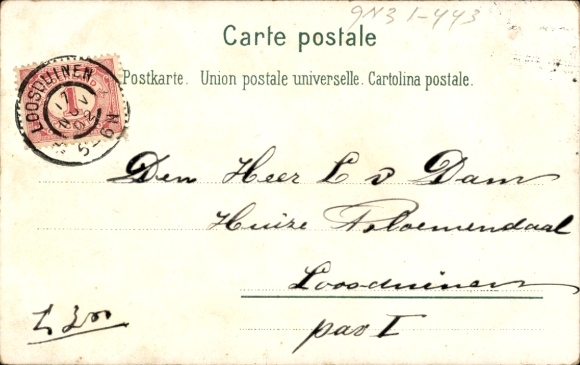 9N3 1-443
Carte postale
Postkarte. Union postale universelle. Cartolina postale.
LOOSDUINEN
1
17
NOV
02
5-6N
Den Heer L v Dam
Huize Bloemendaal
Loosduinen
pav I